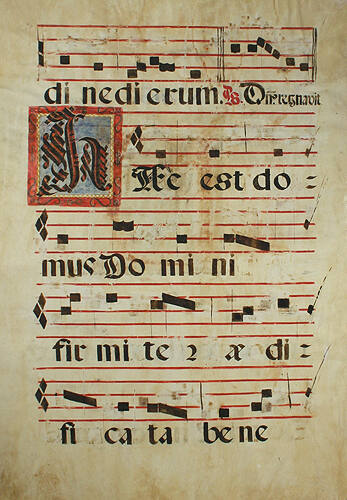 di nedierum. Ps. Dn̄s regnavit
HÆc est do=
mus Do mi ni
fir mi te ꝛ æ di=
fi ca ta be ne